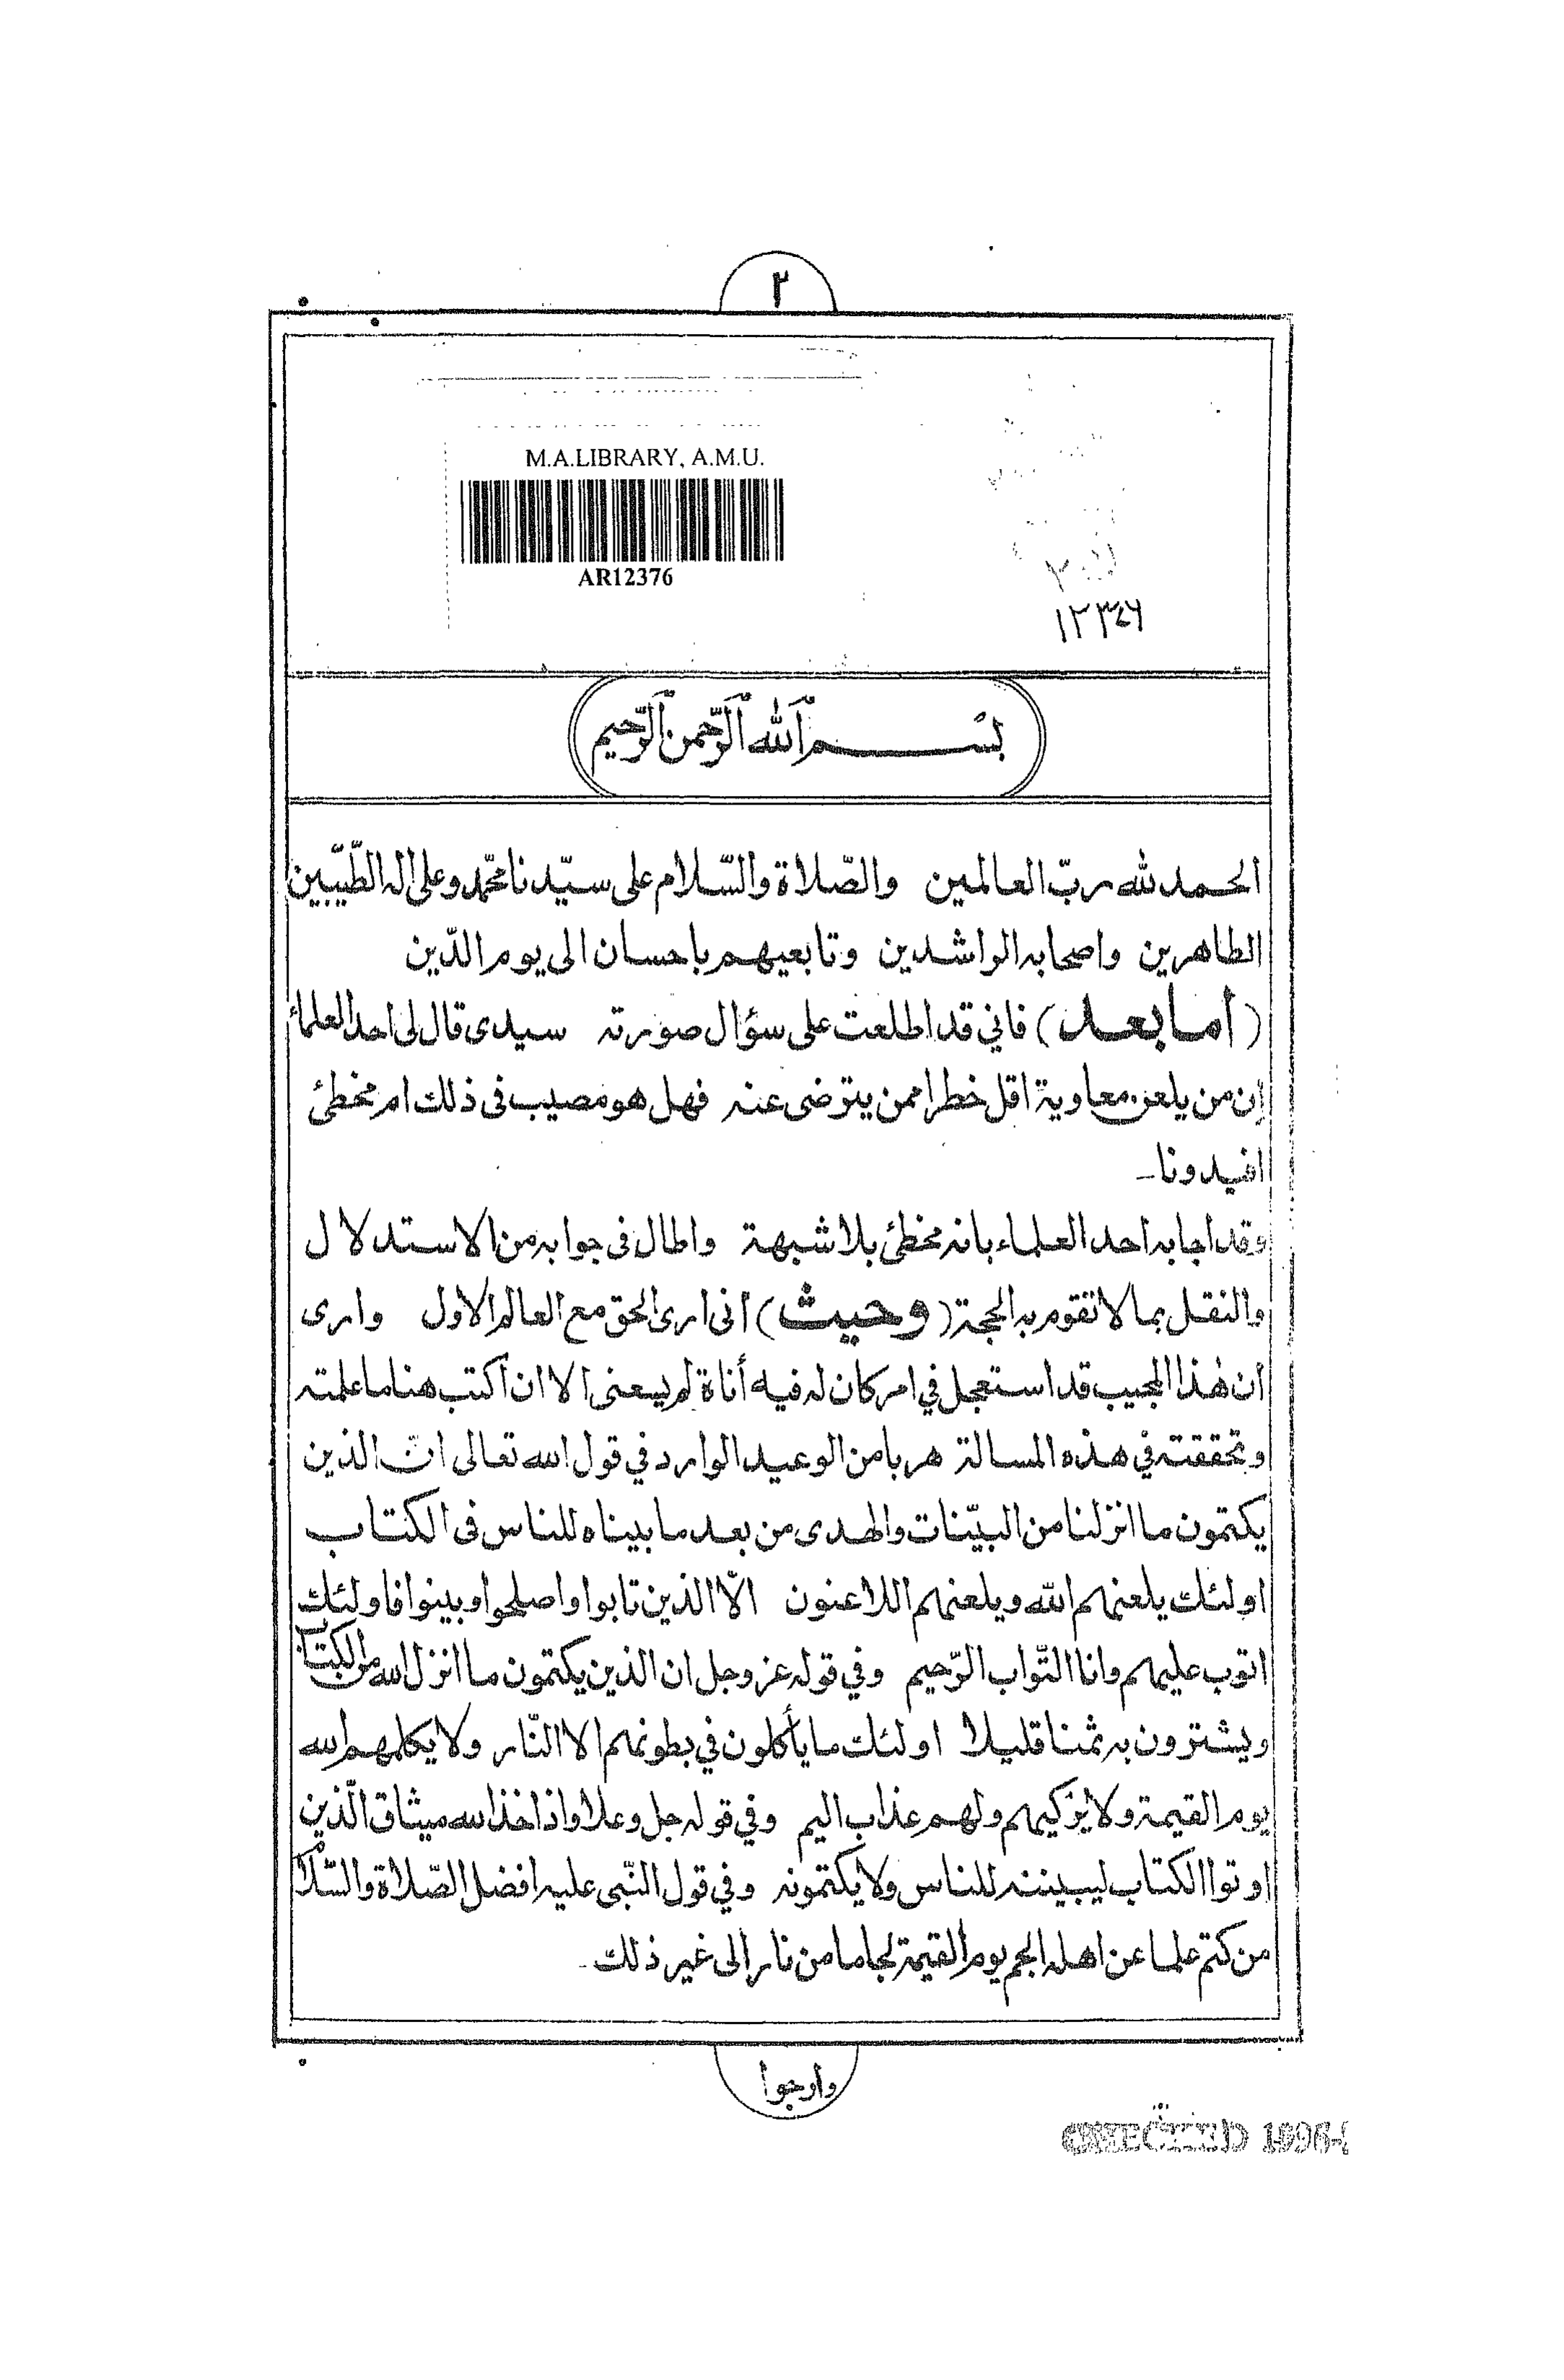 ٢
M.A.LIBRARY, A.M.U.
AR12376
١٢٣٤٦
بِسْمِ اللّٰهِ الرَّحْمٰنِ الرَّحِيْمِ
الحمد لله ربّ العالمين والصّلاة والسّلام على سيّدنا محمّد وعلى اله الطّيّبين
الطاهرين واصحابه الراشدين وتابعيهم باحسان الى يوم الدّين
(أما بعد) فاني قد اطلعت على سؤال صورته سيدى قال لى احد العلماء
إن من يلعن معاوية اقل خطرا ممن يترضى عنه فهل هو مصيب فى ذلك ام مخطئ
افيدونا۔
وقد اجابه احد العلماء بانه مخطئ بلا شبهة واطال فى جوابه من الاستدلال
والنقل بما لا تقوم به الحجة (وحيث) أنى ارى الحق مع العالم الاول وارى
أن هٰذا المجيب قد استعجل في امر كان له فيه أناة لم يسعنى الا ان اكتب هنا ما علمته
وتحققته في هذه المسالة هربا من الوعيد الوارد في قول الله تعالى انّ الذين
يكتمون ما انزلنا من البيّنات والهدى من بعد ما بيناه للناس فى الكتاب
اولئك يلعنهم الله ويلعنهم اللاعنون الّا الذين تابوا واصلحوا وبينوا فاولئك
اتوب عليهم وانا التّواب الرّحيم وفي قوله عز وجل ان الذين يكتمون ما انزل الله من الكتاب
ويشترون به ثمنا قليلا اولئك ما يأكلون في بطونهم الا النّار ولا يكلمهم الله
يوم القيمة ولا يزكيهم ولهم عذاب اليم وفي قوله جل وعلا واذ اخذ الله ميثاق الّذين
اوتوا الكتاب ليبيننه للناس ولا يكتمونه وفي قول النّبى عليه افضل الصّلاة والسّلام
من كتم علما عن اهله الجم يوم القيمة لجاما من نار الى غير ذلك۔
وأرجوا
CHECKED